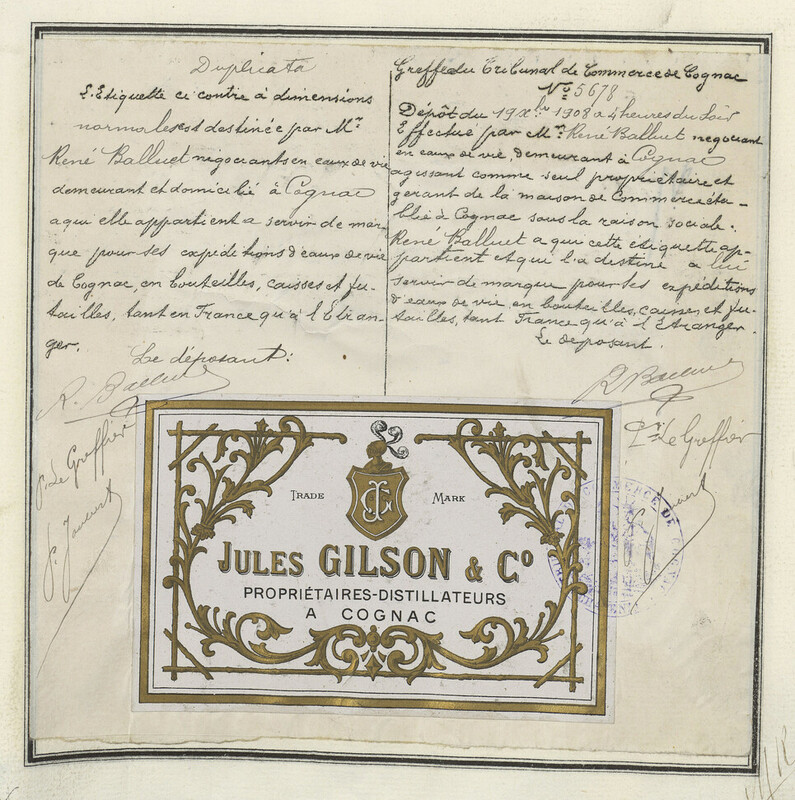 Duplicata
L'Etiquette ci contre à dimensions
normales est destinée par Mr.
René Balluet négociants en eaux de vie
demeurant et domicilié à Cognac
a qui elle appartient a servir de mar-
que pour ses expéditions d'eaux de vie
de Cognac, en bouteilles, caisses et fu-
tailles, tant en France qu'à l'Etran-
ger.
Le déposant:
R. Balluet
P. Le Greffier
Greffe du Tribunal de Commerce de Cognac
No 5678
Dépôt du 19 Xbre 1908 a 4 heures du Soir
Effectué par Mr. René Balluet negociant
en eaux de vie, demeurant à Cognac
agissant comme seul propriétaire et
gérant de la maison de Commerce éta-
blie à Cognac sous la raison sociale:
René Balluet a qui cette étiquette ap-
partient et qui l'a destiné a lui
servir de marque pour ses expéditions
d'eaux de vie, en bouteilles, caisses et fu-
tailles, tant France qu'à l'Etranger.
Le deposant.
R Balluet
Pr. Le Greffier
TRADE MARK
JULES GILSON & Co
PROPRIÉTAIRES-DISTILLATEURS
A COGNAC